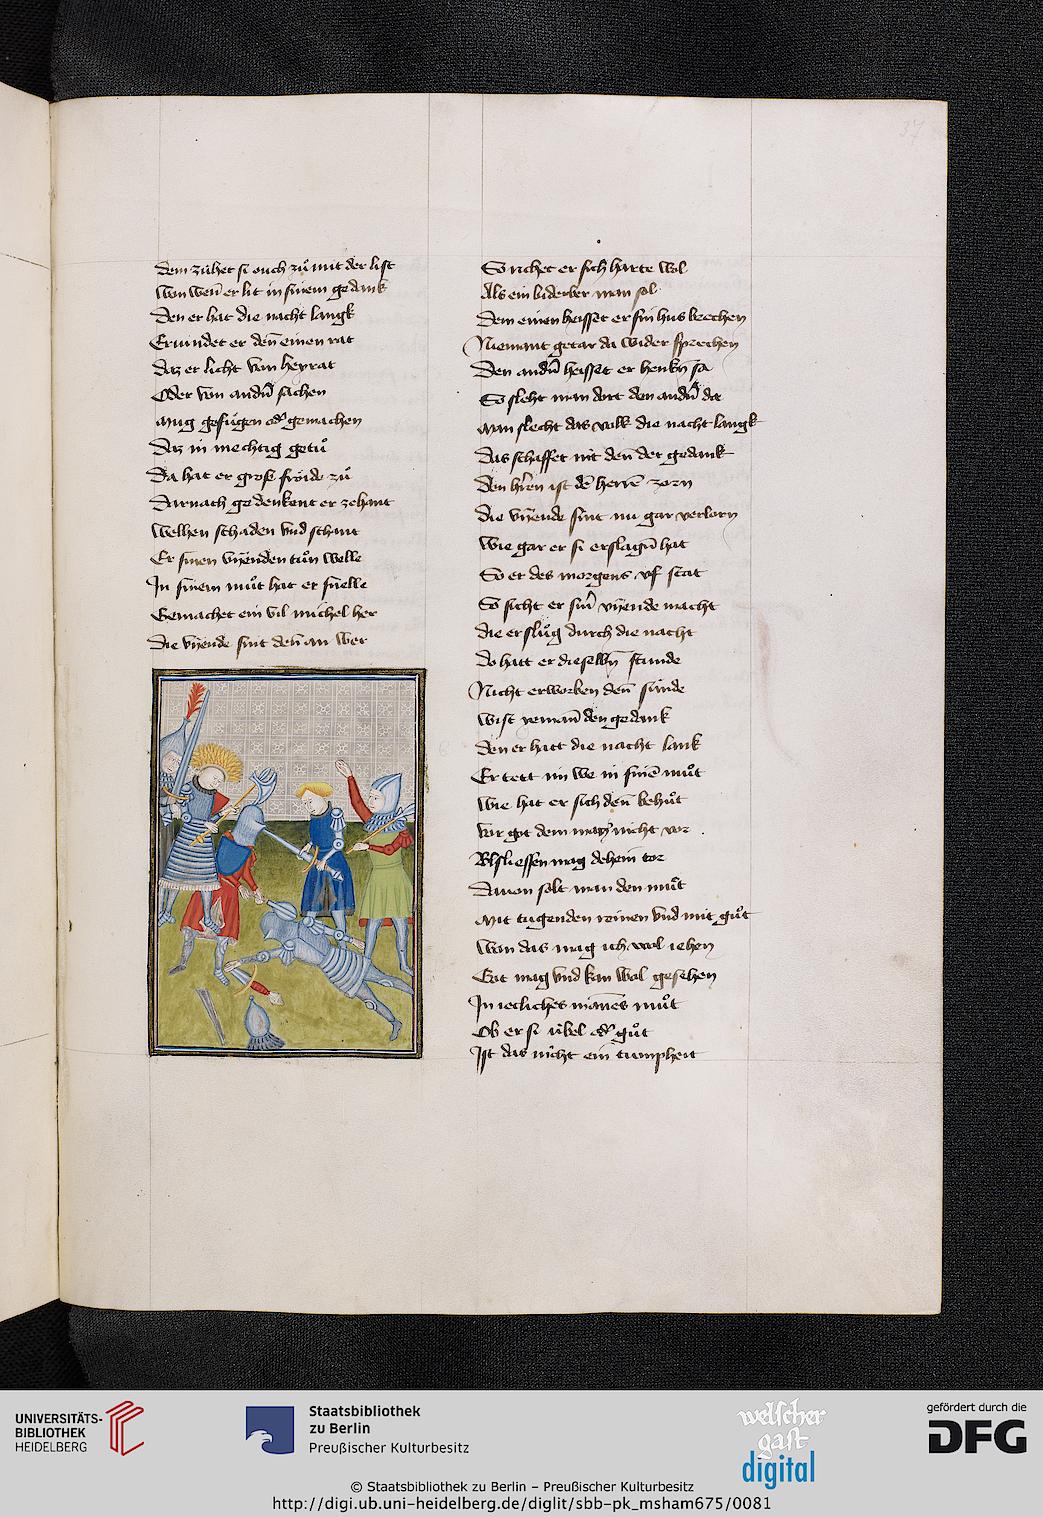 37
Dem zühet si ouch zuͦ mit der list
Won wen̄ er lit in sinem gedank
Den er hat die nacht langk
Ervindet er den̄ einen rat
Daz er licht von heyrat
Oder von andn̄ sachen
Mug gefügen od' gemachen
Daz in mechtig getuͦ
Da hat er groß fröide zuͦ
Darnach gedenkent er zehant
Welhen schaden vnd schant
Er sinen vÿenden tuͦn welle
In sinem muͦt hat er snelle
Gemachet ein vil michel her
Die vÿende sint den̄ an wer
So richet er sich harte wol
Als ein biderber man sol
Dem einen heisset er sin hus brechen
Niemant getar da wider sprechen
Den andn̄ heisset er henkn̄ sa
So sleht man dort den andn̄ da
Man slecht das volk die nacht langk
Das schaffet nit den̄ der gedank
Den hr̄en ist dē herrē zorn
Die vÿende sint nu gar verlorn
Wie gar er si erslagn̄ hat
So er des morgens vf stat
So sicht er sinr̄ vÿende macht
Die er sluͦg durch die nacht
Do hatt er dieselbn̄ stunde
Nicht erworben den̄ sünde
Wist yeman̄ den gedank
Den er hatt die nacht lank
Er tett im we in sinē muͦt
Wie hat er sich den̄ behuͦt
Vor got dem may' nicht vor
Besliessen mag dehein tor
Davon solt man den muͦt
Mit tugenden reinen vnd mit guͦt
Wan das mag ich wol iehen
Got mag vnd kan wol gesehen
In iecliches mannes muͦt
Ob er si übel od' guͦt
Ist das nicht ein tumpheit
UNIVERSITÄTS-
BIBLIOTHEK
HEIDELBERG
Staatsbibliothek
zu Berlin
Preußischer Kulturbesitz
welscher
gast
digital
gefördert durch die
DFG
© Staatsbibliothek zu Berlin – Preußischer Kulturbesitz
http://digi.ub.uni-heidelberg.de/diglit/sbb-pk_msham675/0081